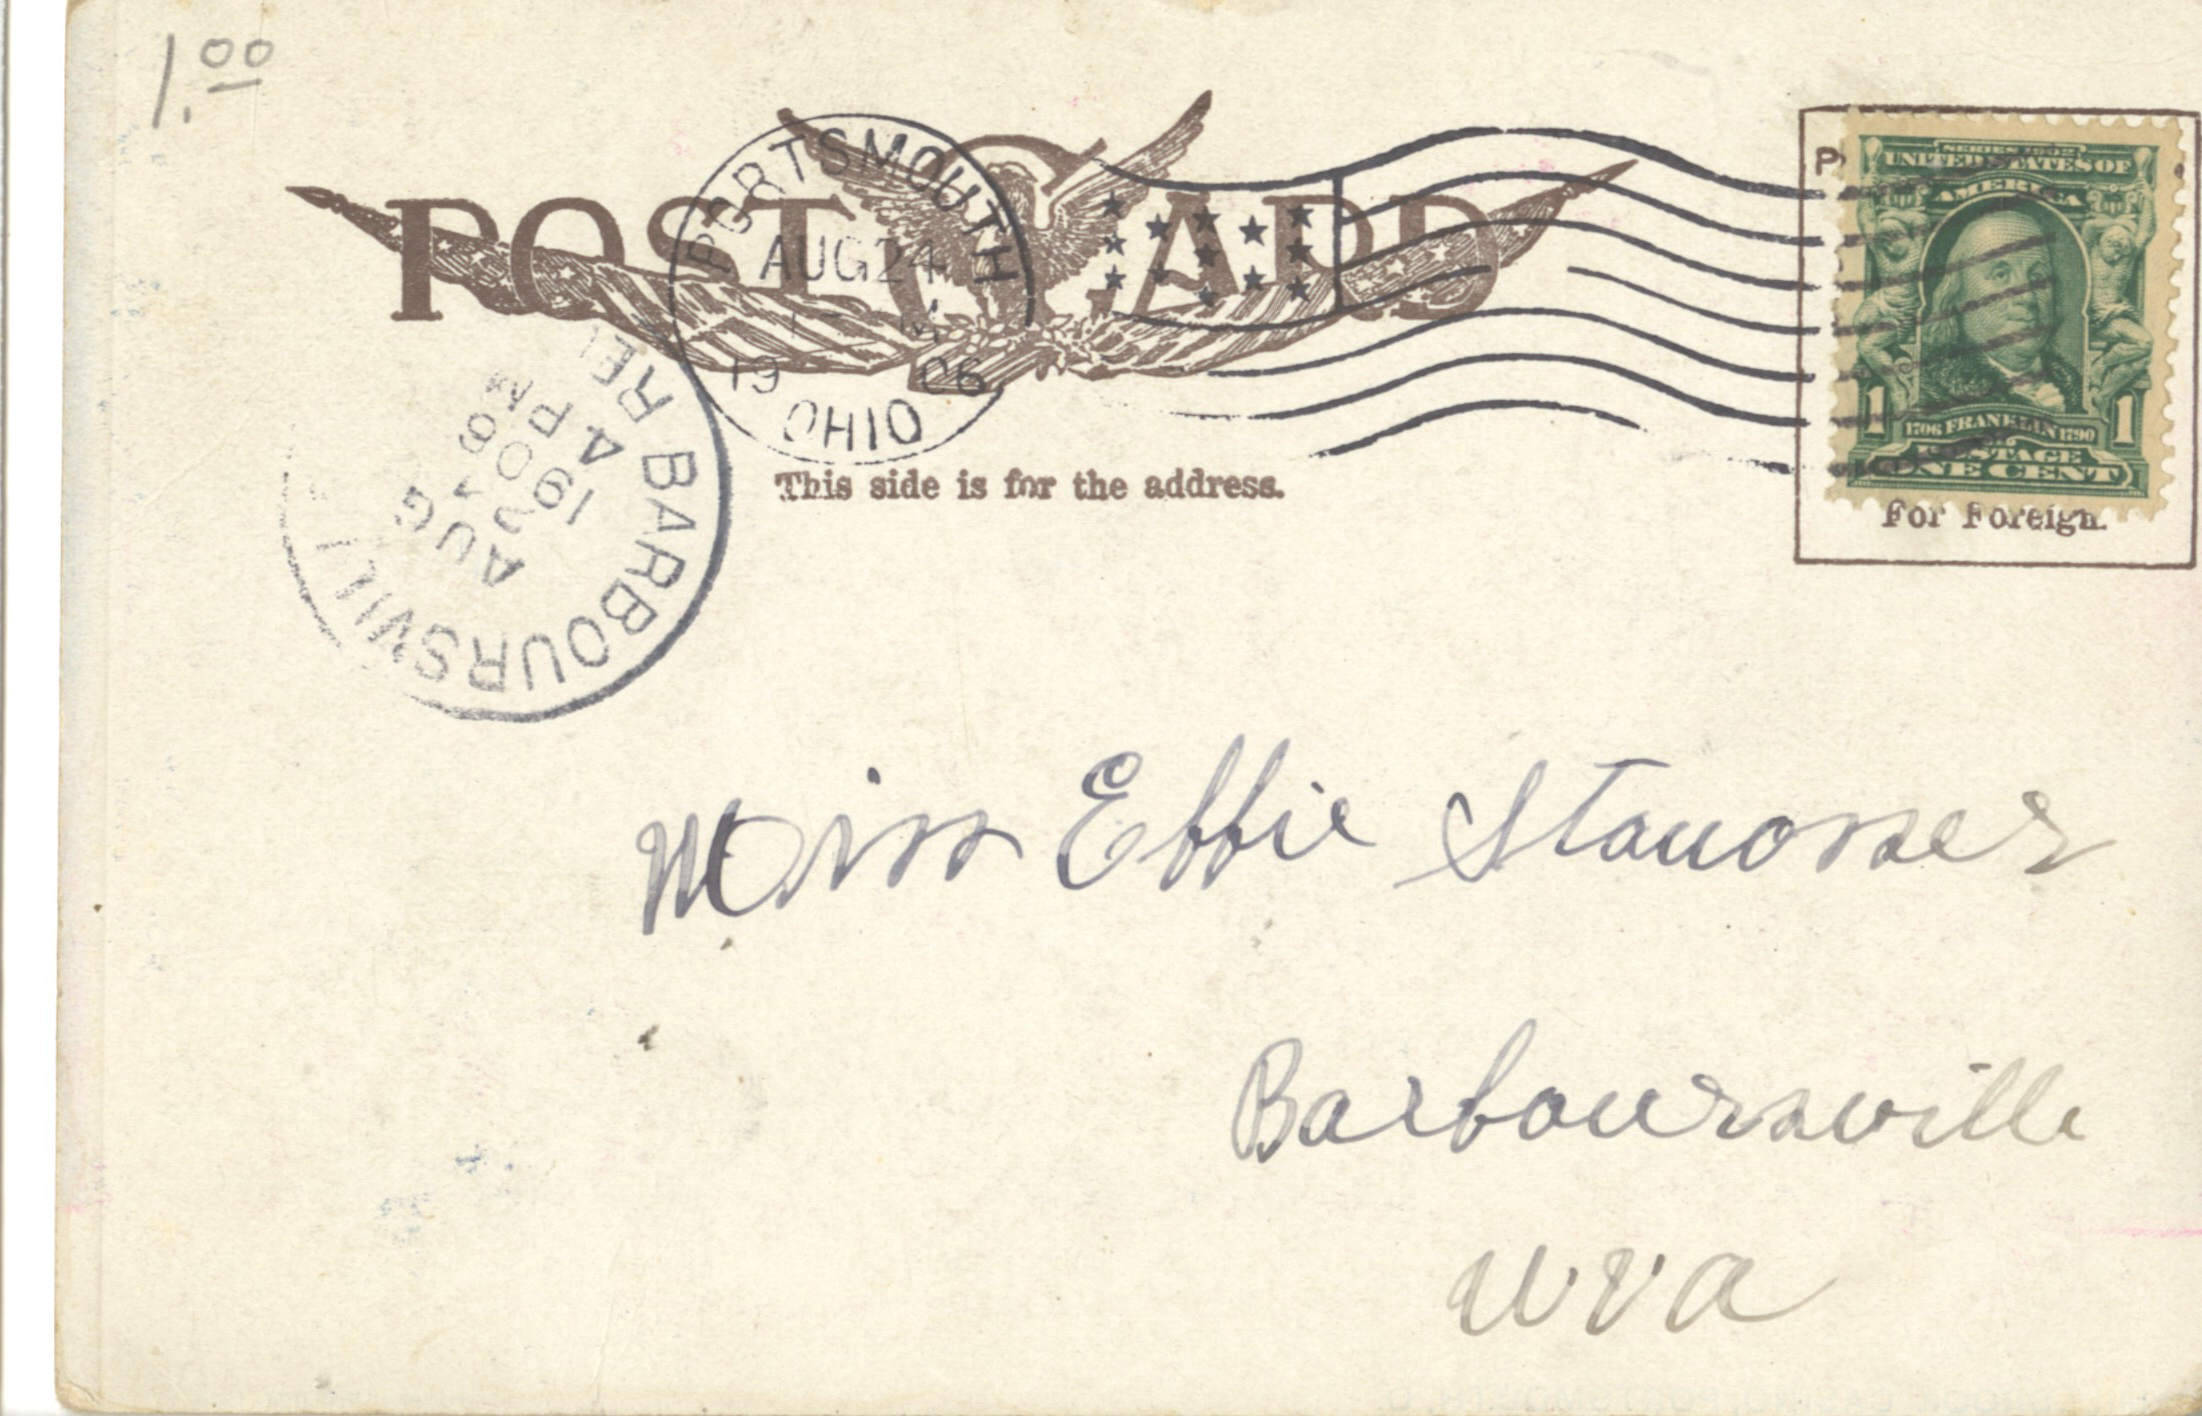 1.00
POST CARD
PORTSMOUTH
AUG 24
M
1906
OHIO
SERIES 1902
UNITED STATES OF
AMERICA
1 1
1706 FRANKLIN 1790
POSTAGE
ONE CENT
For Foreign.
This side is for the address.
BARBOURSVILL
AUG
1906
4 PM
Miss Effie
Barboursville
W Va